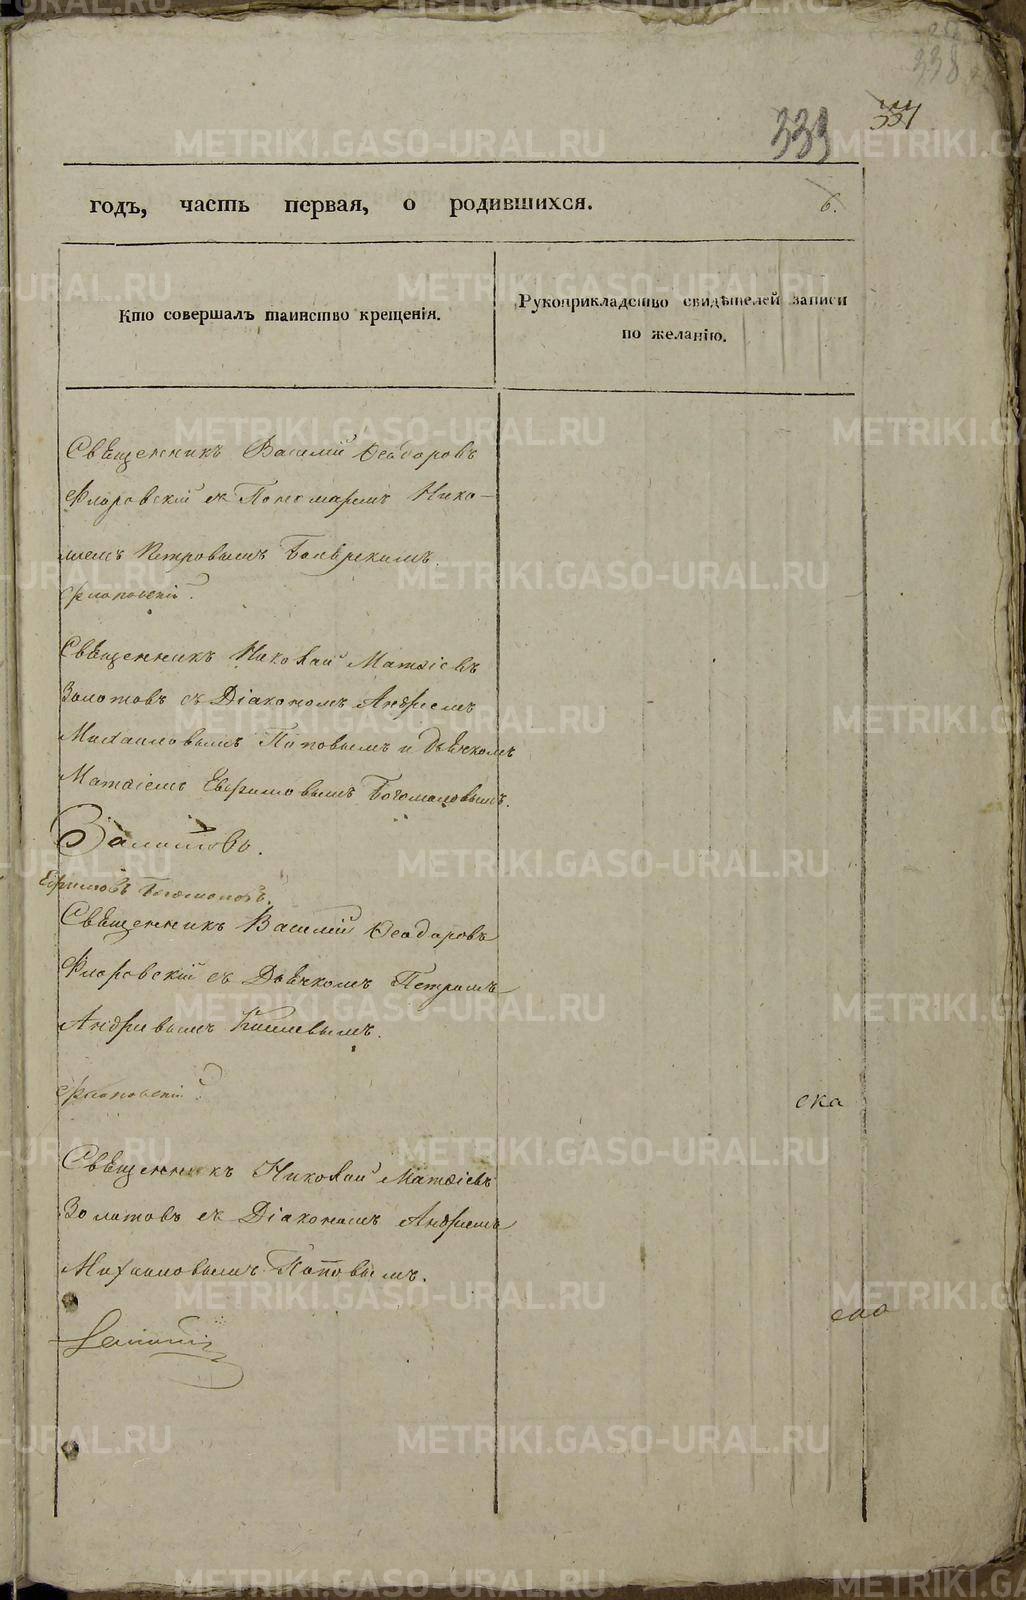 338
339
годъ, часть первая, о родившихся.
6.
Кто совершалъ таинство крещенія.
Рукоприкладство свидѣтелей записи
по желанію.
Священникъ Василій Ѳеодоровъ
Флоровскій съ Пономаремъ Нико-
лаемъ Петровымъ Боярскимъ.
Флоровскій
Священникъ Николай Матѳіевъ
Золотовъ съ Діакономъ Андреемъ
Михаиловымъ Поповымъ и Дьячкомъ
Матѳіемъ Ефимовымъ Богомоловымъ.
Золотовъ.
Ефимовъ Богомоловъ.
Священникъ Василій Ѳеодоровъ
Флоровскій съ Дьячкомъ Петромъ
Андреевымъ
Флоровскій
ска
Священникъ Николай Матѳіевъ
Золотовъ съ Діакономъ Андреемъ
Михаиловымъ Поповымъ.
METRIKI.GASO-URAL.RU